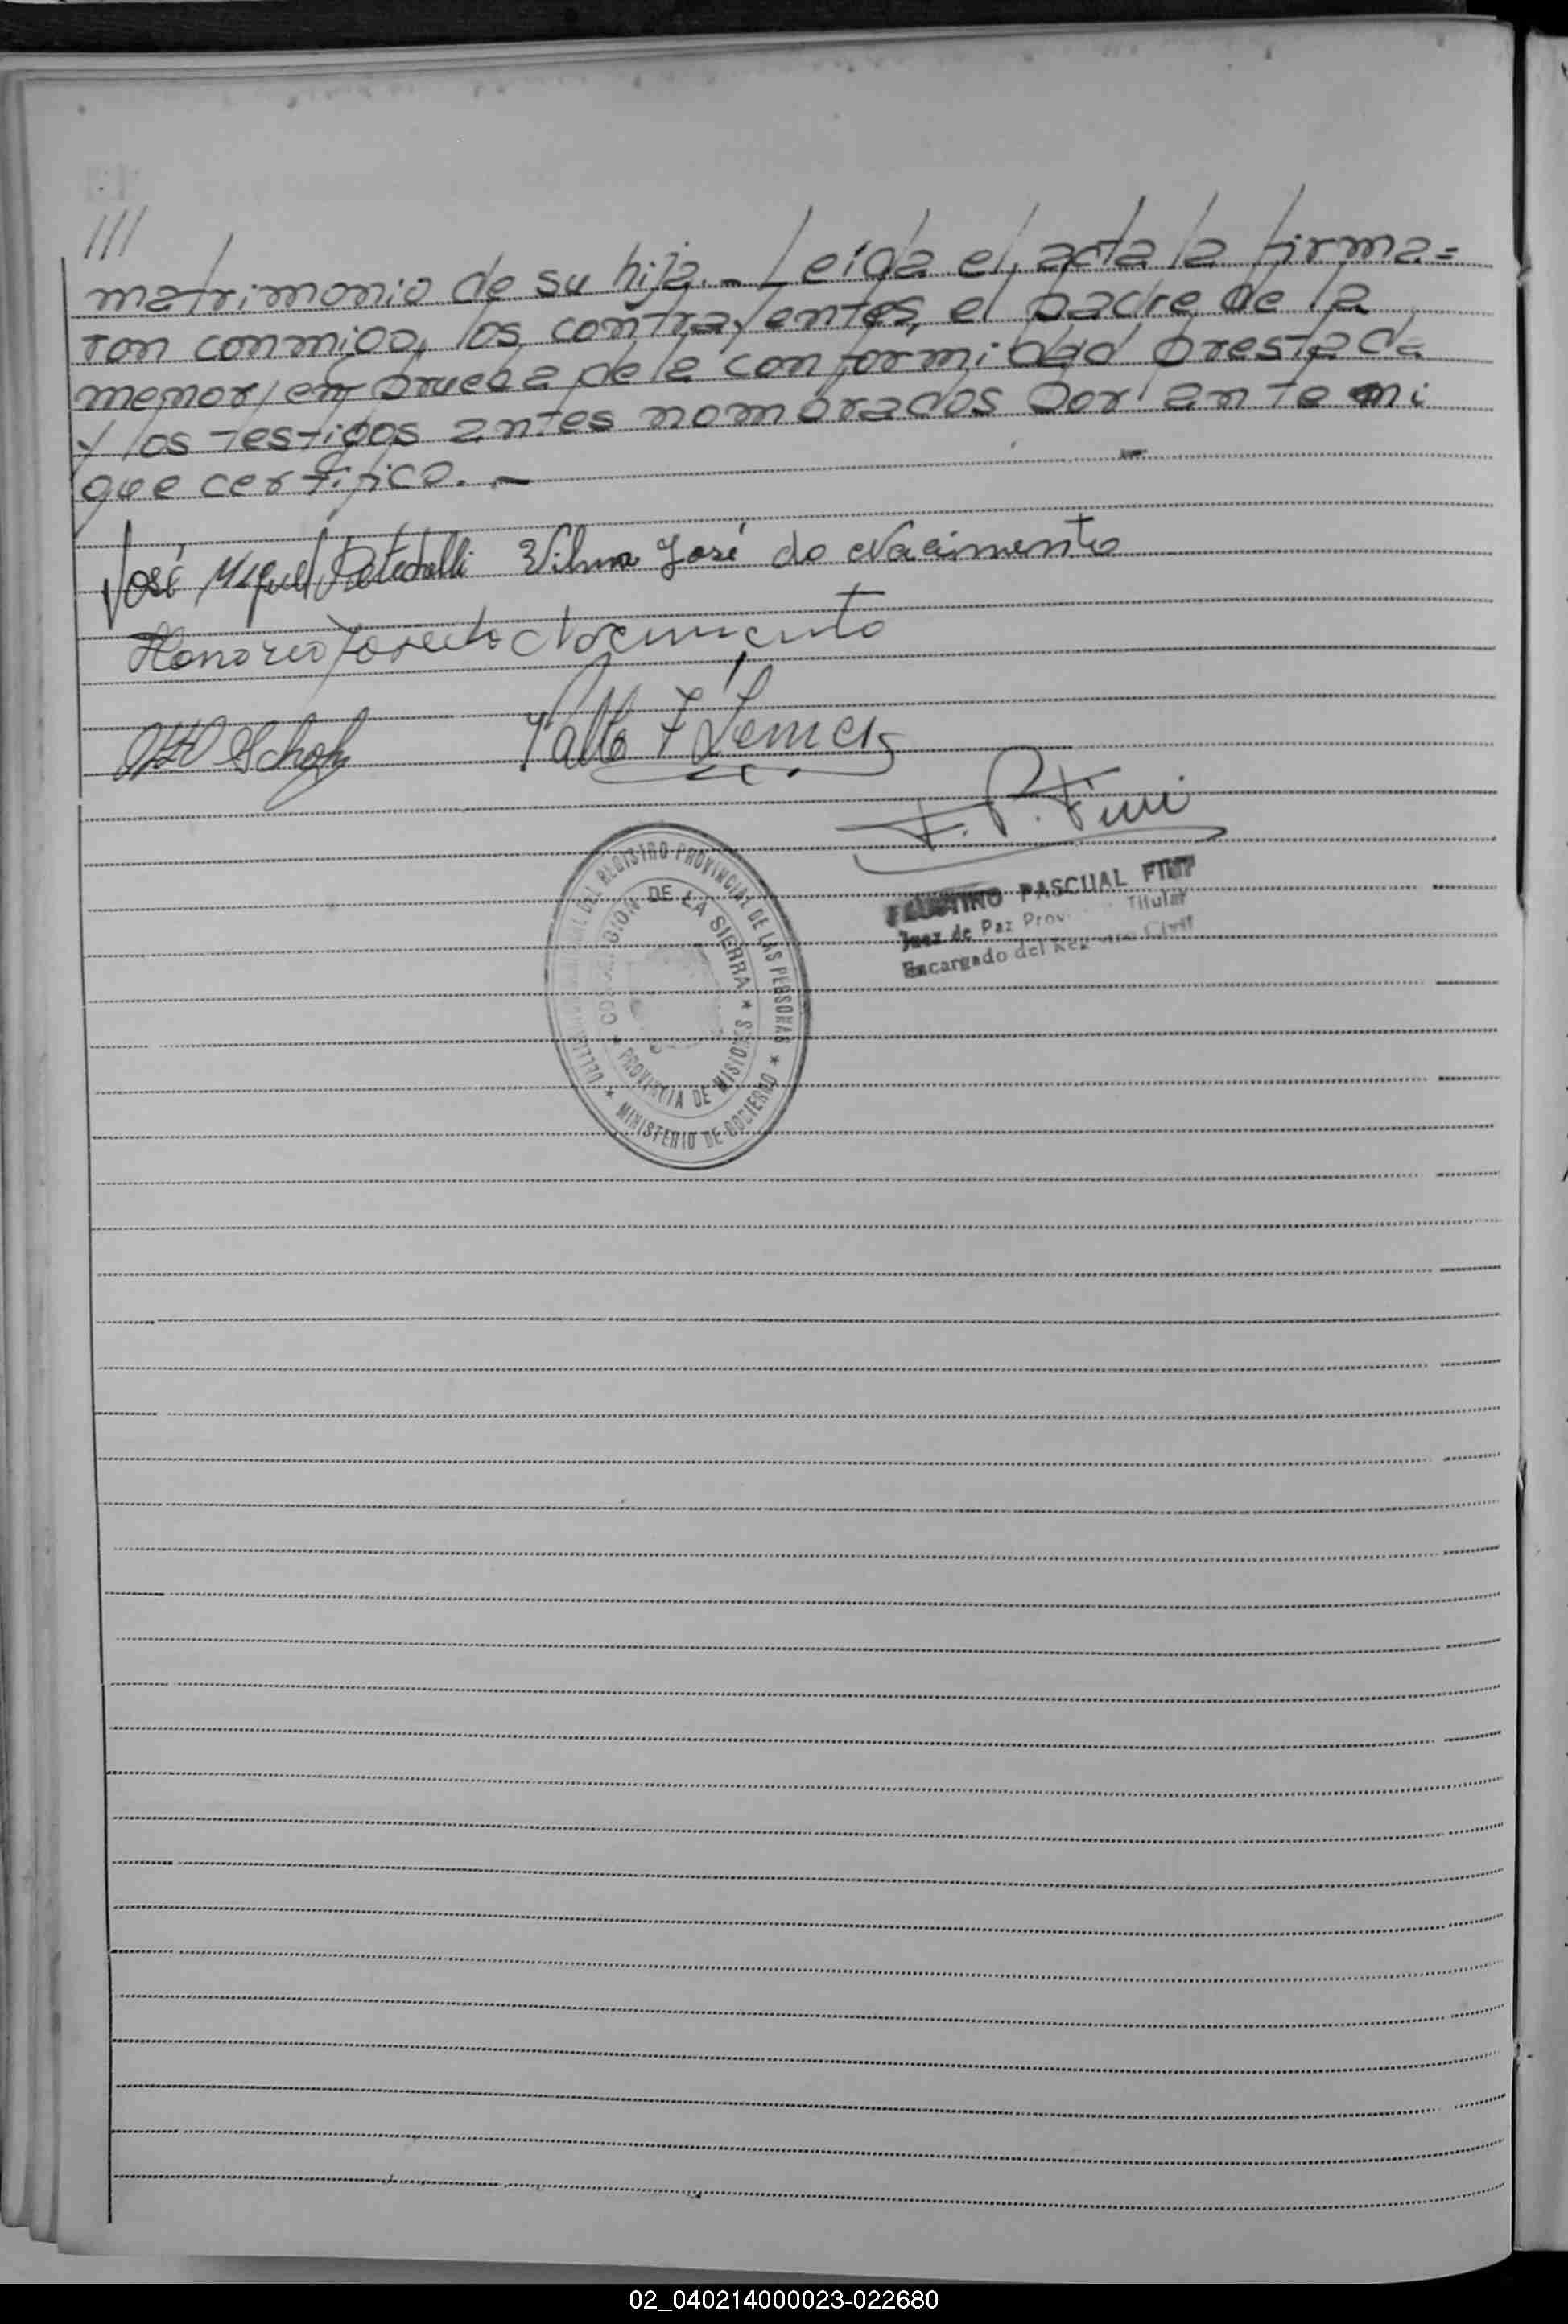 ///
matrimonio de su hija.- Leída el acta la firma=
ron conmigo, los contrayentes, el padre de la
menor, en prueba de la conformidad prestada
y los testigos antes nombrados por ante mi
que certifico.-
José Miguel Wilma José do Nascimento
Honorio José do Nascimento
F. P. Fini
FAUSTINO PASCUAL FINI
Juez de Paz Prov Titular
Encargado del Registro Civil
DEL REGISTRO PROVINCIAL DE LAS PERSONAS
DE LA SIERRA
PROVINCIA DE MISIONES
MINISTERIO DE GOBIERNO
02_040214000023-022680